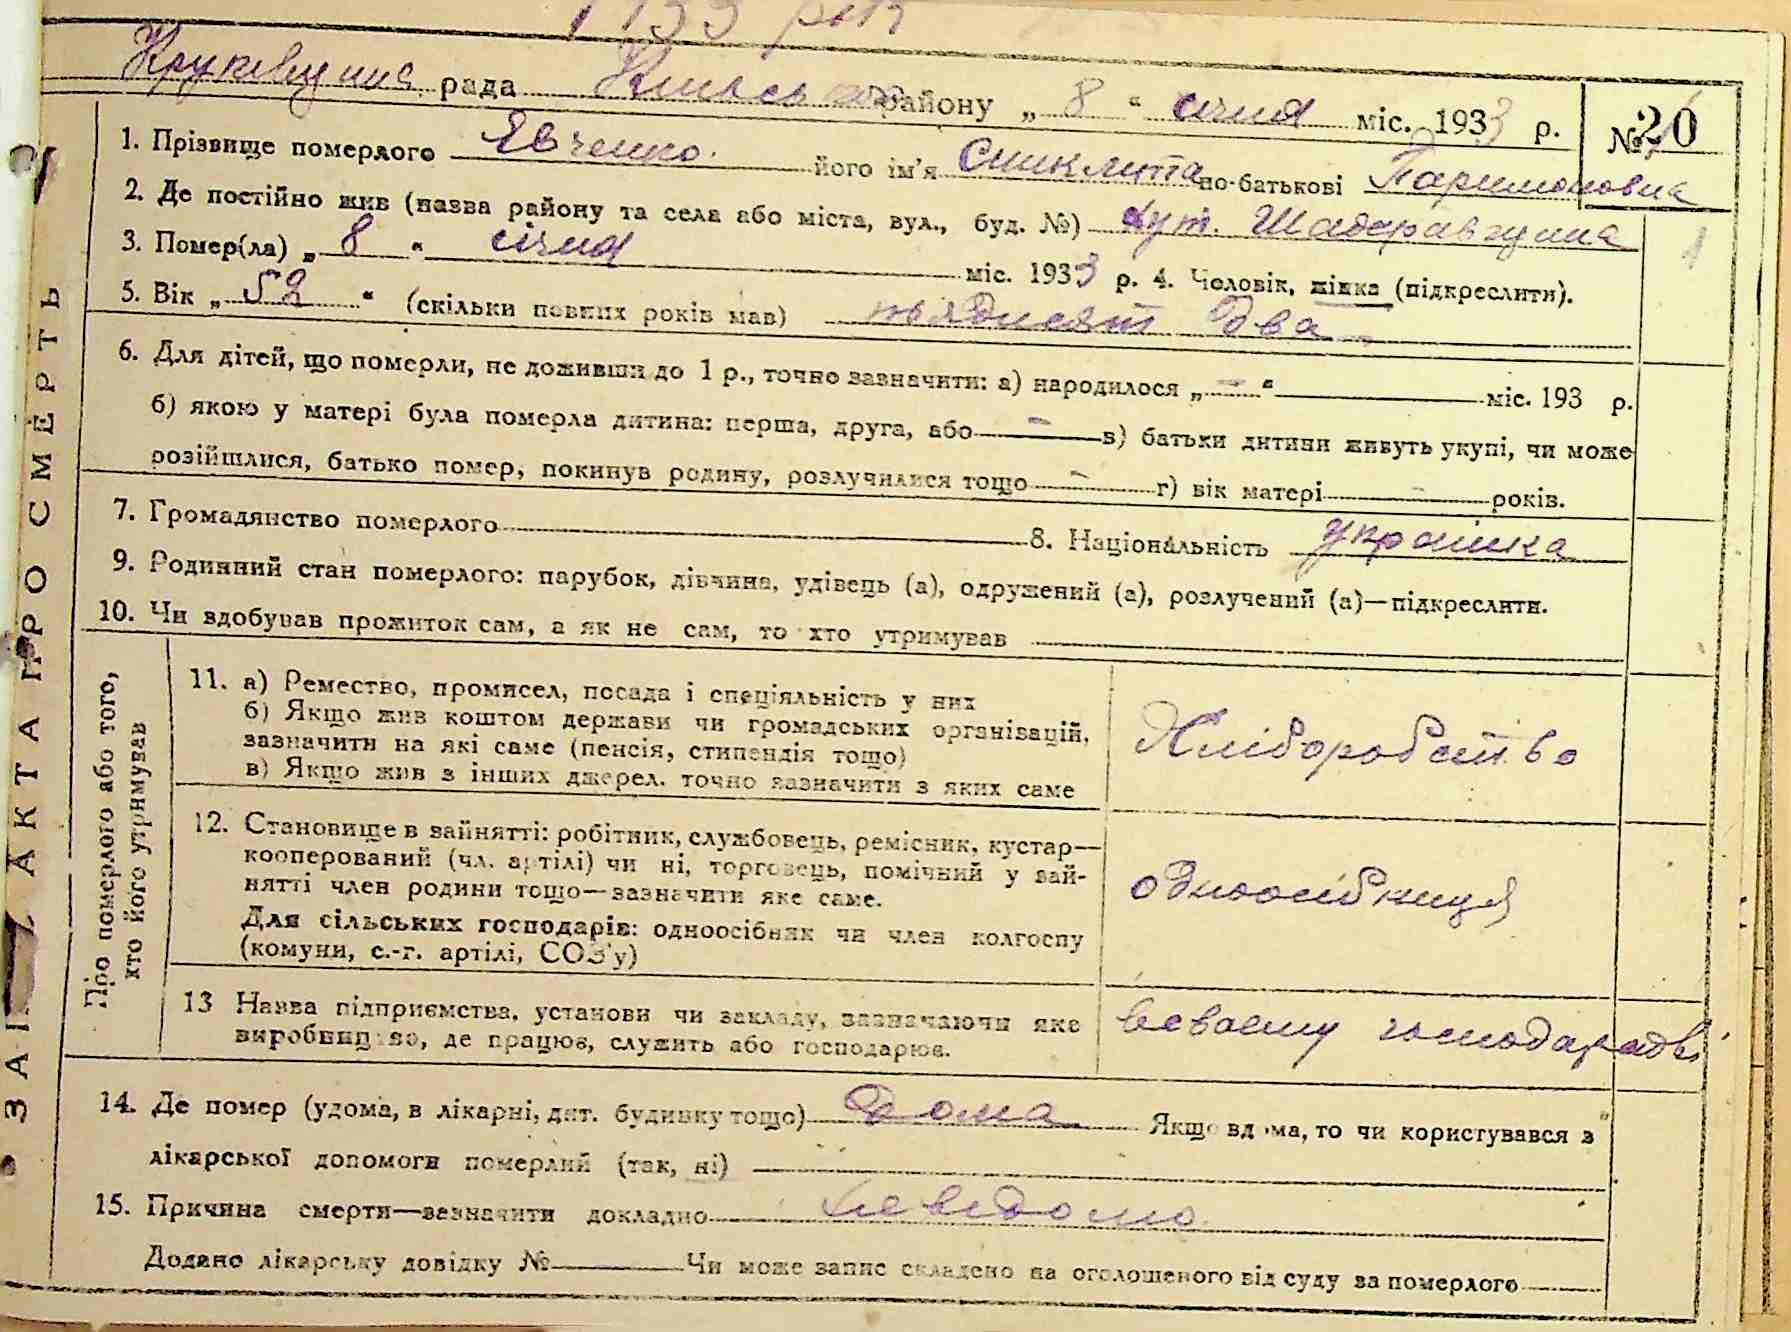 1933 рік
рада району „ 8 “ січня міс. 1933 р.
№ 26
1. Прізвище померлого Явченко його ім'я Синклита по-батькові Паримоновна
2. Де постійно жив (назва району та села або міста, вул., буд. №) хут. Шадеравщина
3. Помер(ла) „ 8 “ січня міс. 1933 р. 4. Чоловік, жінка (підкреслити).
5. Вік „ 52 “ (скільки повних років мав) пьядисят два
6. Для дітей, що померли, не доживши до 1 р., точно зазначити: а) народилося „ — “ міс. 193 р.
б) якою у матері була померла дитина: перша, друга, або — в) батьки дитини живуть укупі, чи може
розійшлися, батько помер, покинув родину, розлучилися тощо — г) вік матері — років.
7. Громадянство померлого 8. Національність украінка
9. Родинний стан померлого: парубок, дівчина, удівець (а), одружений (а), розлучений (а)—підкреслити.
10. Чи здобував прожиток сам, а як не сам, то хто утримував
ЗАПИС АКТА ПРО СМЕРТЬ
Про померлого або того,
хто його утримував
11. а) Ремество, промисел, посада і спеціяльність у них
б) Якщо жив коштом держави чи громадських організацій,
зазначити на які саме (пенсія, стипендія тощо)
в) Якщо жив з інших джерел, точно зазначити з яких саме
Хліборобство
12. Становище в зайнятті: робітник, службовець, ремісник, кустар—
кооперований (чл. артілі) чи ні, торговець, помічний у зай-
нятті член родини тощо—зазначити яке саме.
Для сільських господарів: одноосібник чи член колгоспу
(комуни, с.-г. артілі, СОЗ'у)
одноосібниця
13 Назва підприємства, установи чи закладу, зазначаючи яке
виробництво, де працює, служить або господарює.
всвоему
14. Де помер (удома, в лікарні, дит. будинку тощо) Дома Якщо вдома, то чи користувався з
лікарської допомоги померлий (так, ні)
15. Причина смерти—зазначити докладно Невідомо
Додано лікарську довідку № Чи може запис складено на оголошеного від суду за померлого